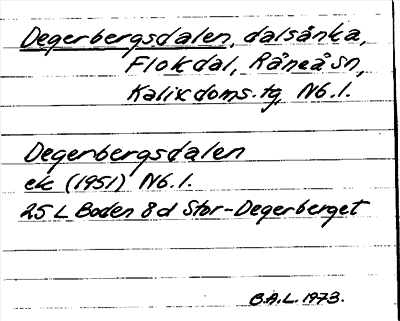 Degerbergsdalen, dalsänka,
Flokdal, Råneå sn,
Kalix doms. tg, Nb. l.
Degerbergsdalen
ek (1951) Nb. l.
25 L Boden 8 d Stor-Degerberget
B.A.L. 1973.